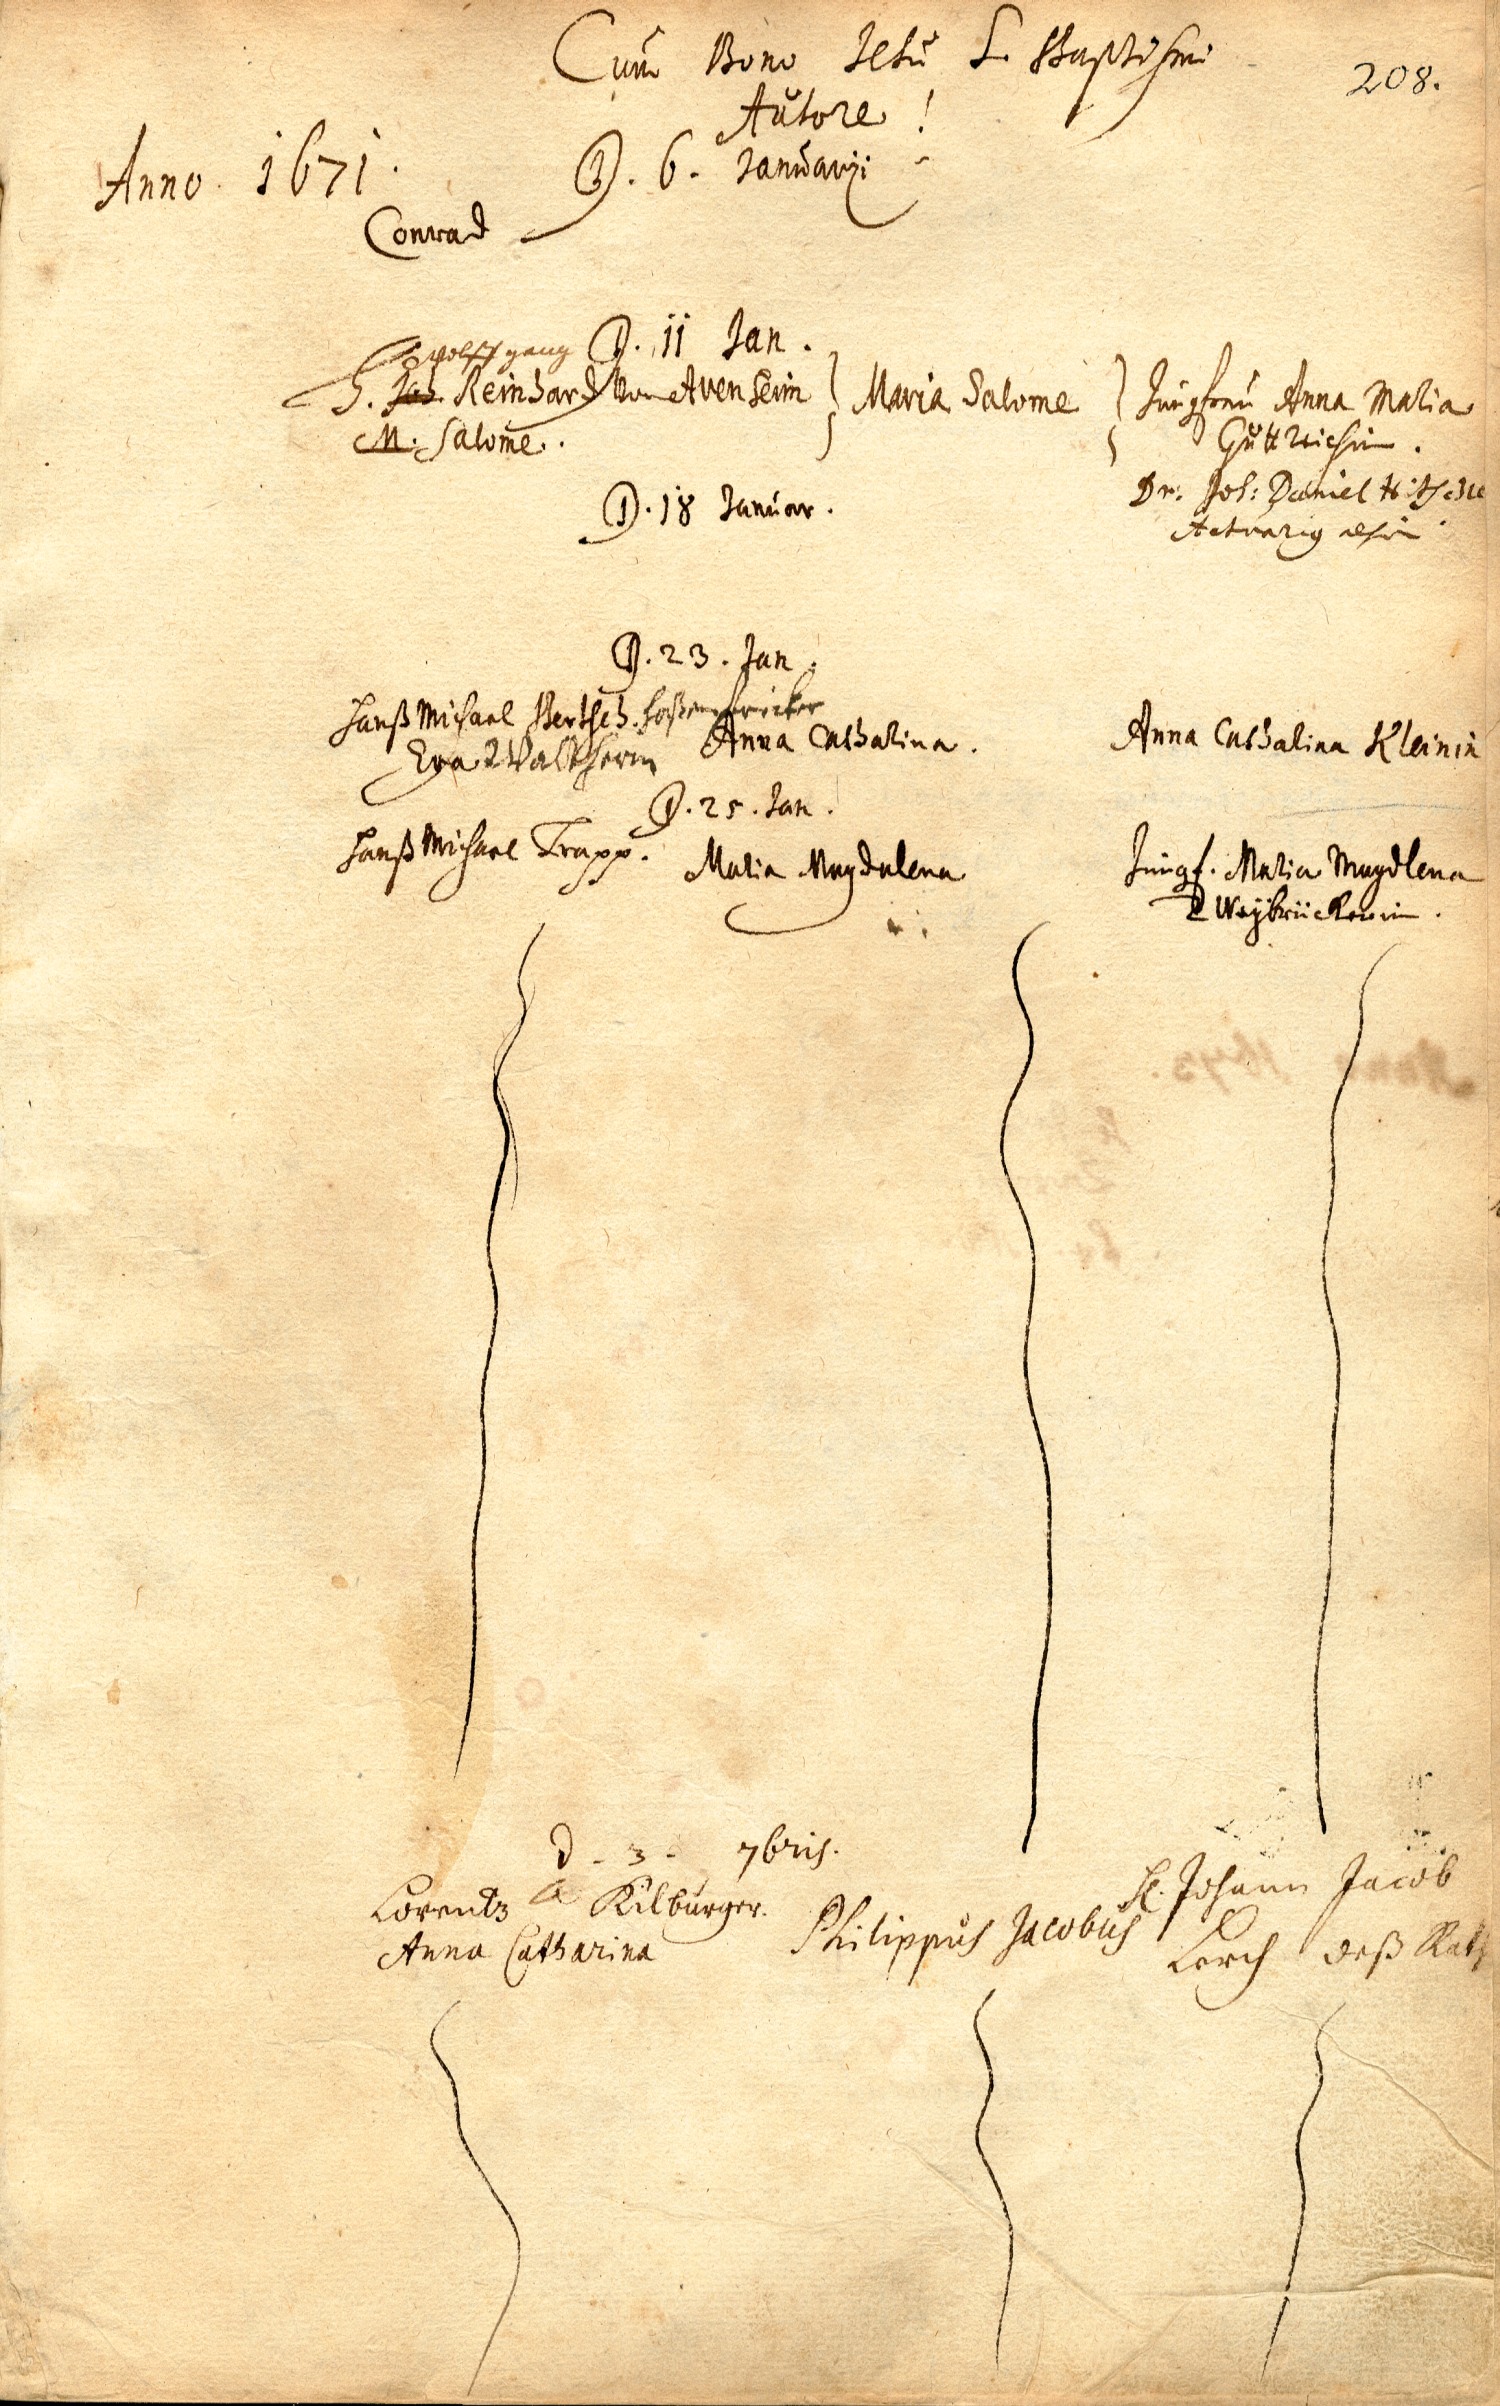 Cum Bono Jesu S. Baptismi
208.
Autore!
Anno 1671.
D. 6. Januarii
Conrad
D. 11 Jan.
Wolffgang
H. Joh. Reinhard von Avenheim } Maria Salome } Jungfrau Anna Maria
M. Salome.
Dr. Joh: Daniel
D. 18 Januar.
D. 23. Jan.
Hanß Michael Bertsch.
Eva Waltherin Anna Catharina. Anna Catharina Kleinin
D. 25. Jan.
Hanß Michael Trapp. Maria Magdalena Jungf. Maria Magdlena
Zweÿbrückerin.
d. 3. 7bris.
Lorentz Kilburger. Philippus Jacobus H. Johann Jacob
Anna Catharina Lerch deß Rath